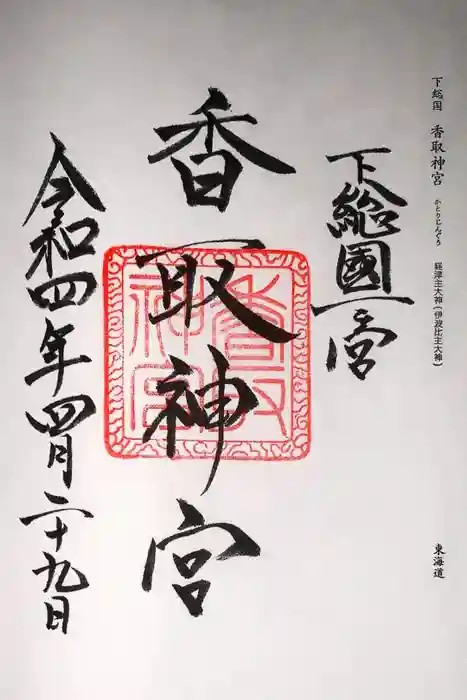 下総国 香取神宮 かとりじんぐう 経津主大神(伊波比主大神)
東海道
下総國一之宮
香取神宮
香取神宮
令和四年四月二十九日